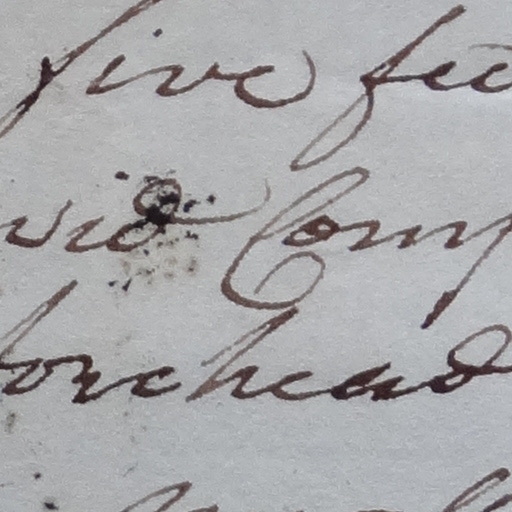 five fee
vid Comp
forehead